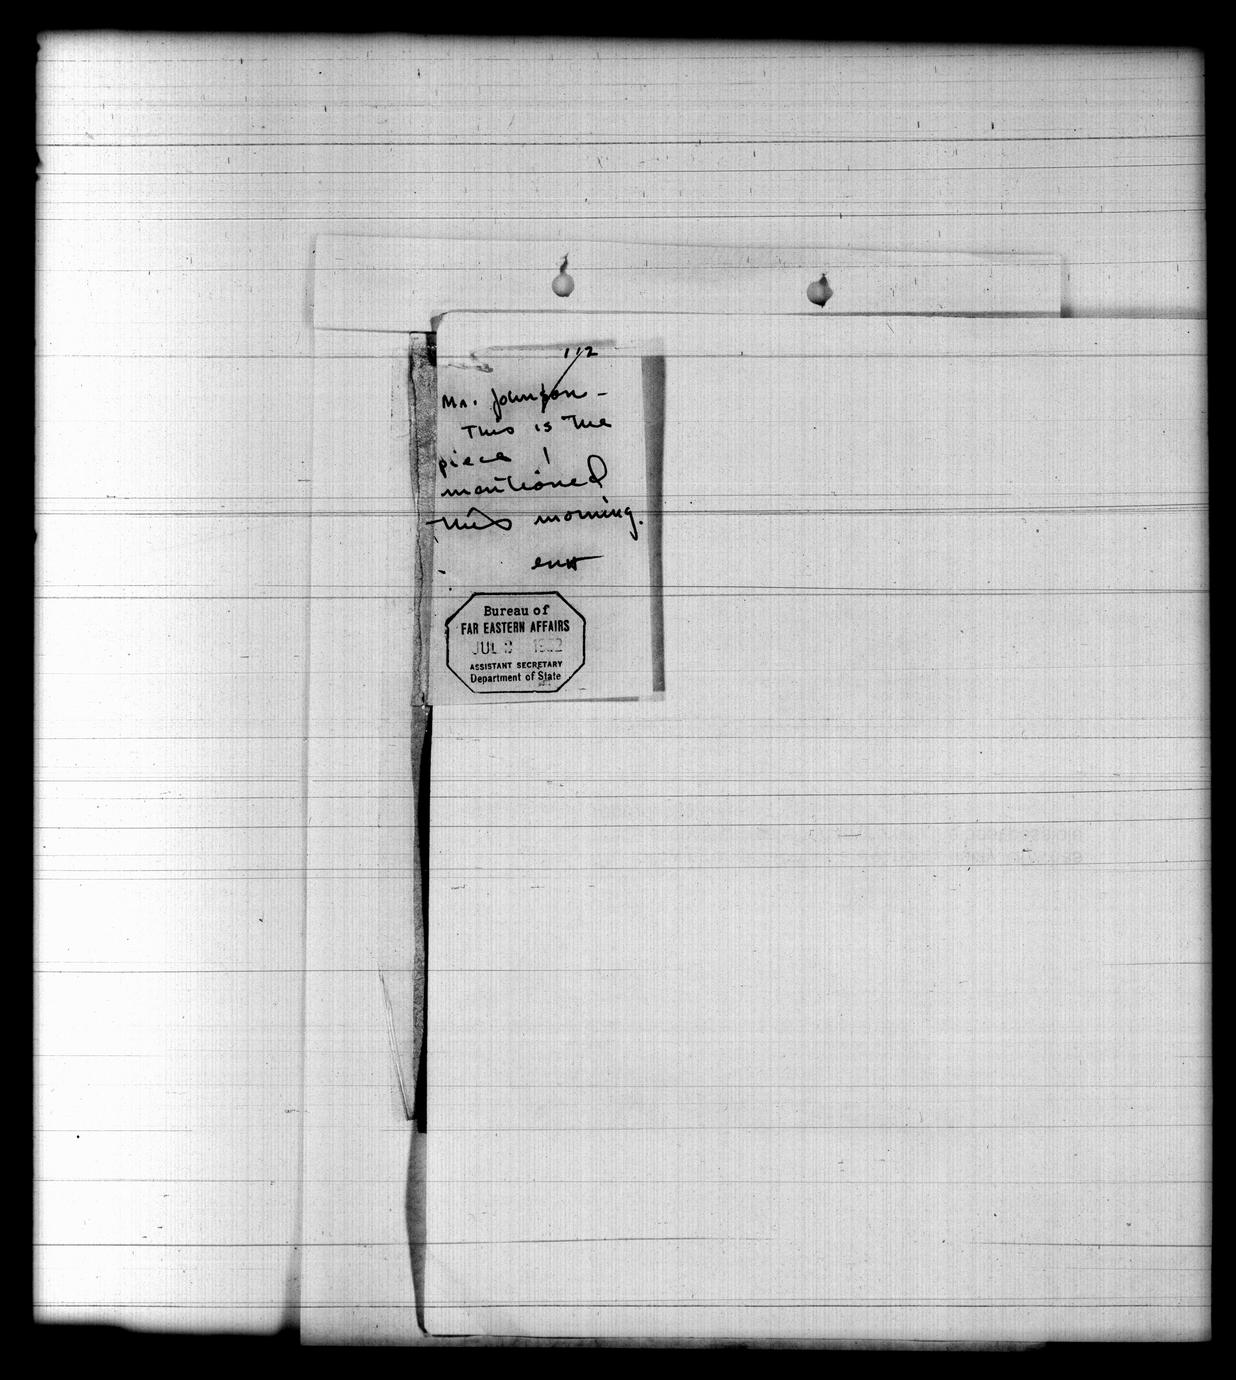 112
Mr. Johnson –
This is the
piece I
mentioned
this morning.
Bureau of
FAR EASTERN AFFAIRS
JUL
ASSISTANT SECRETARY
Department of State